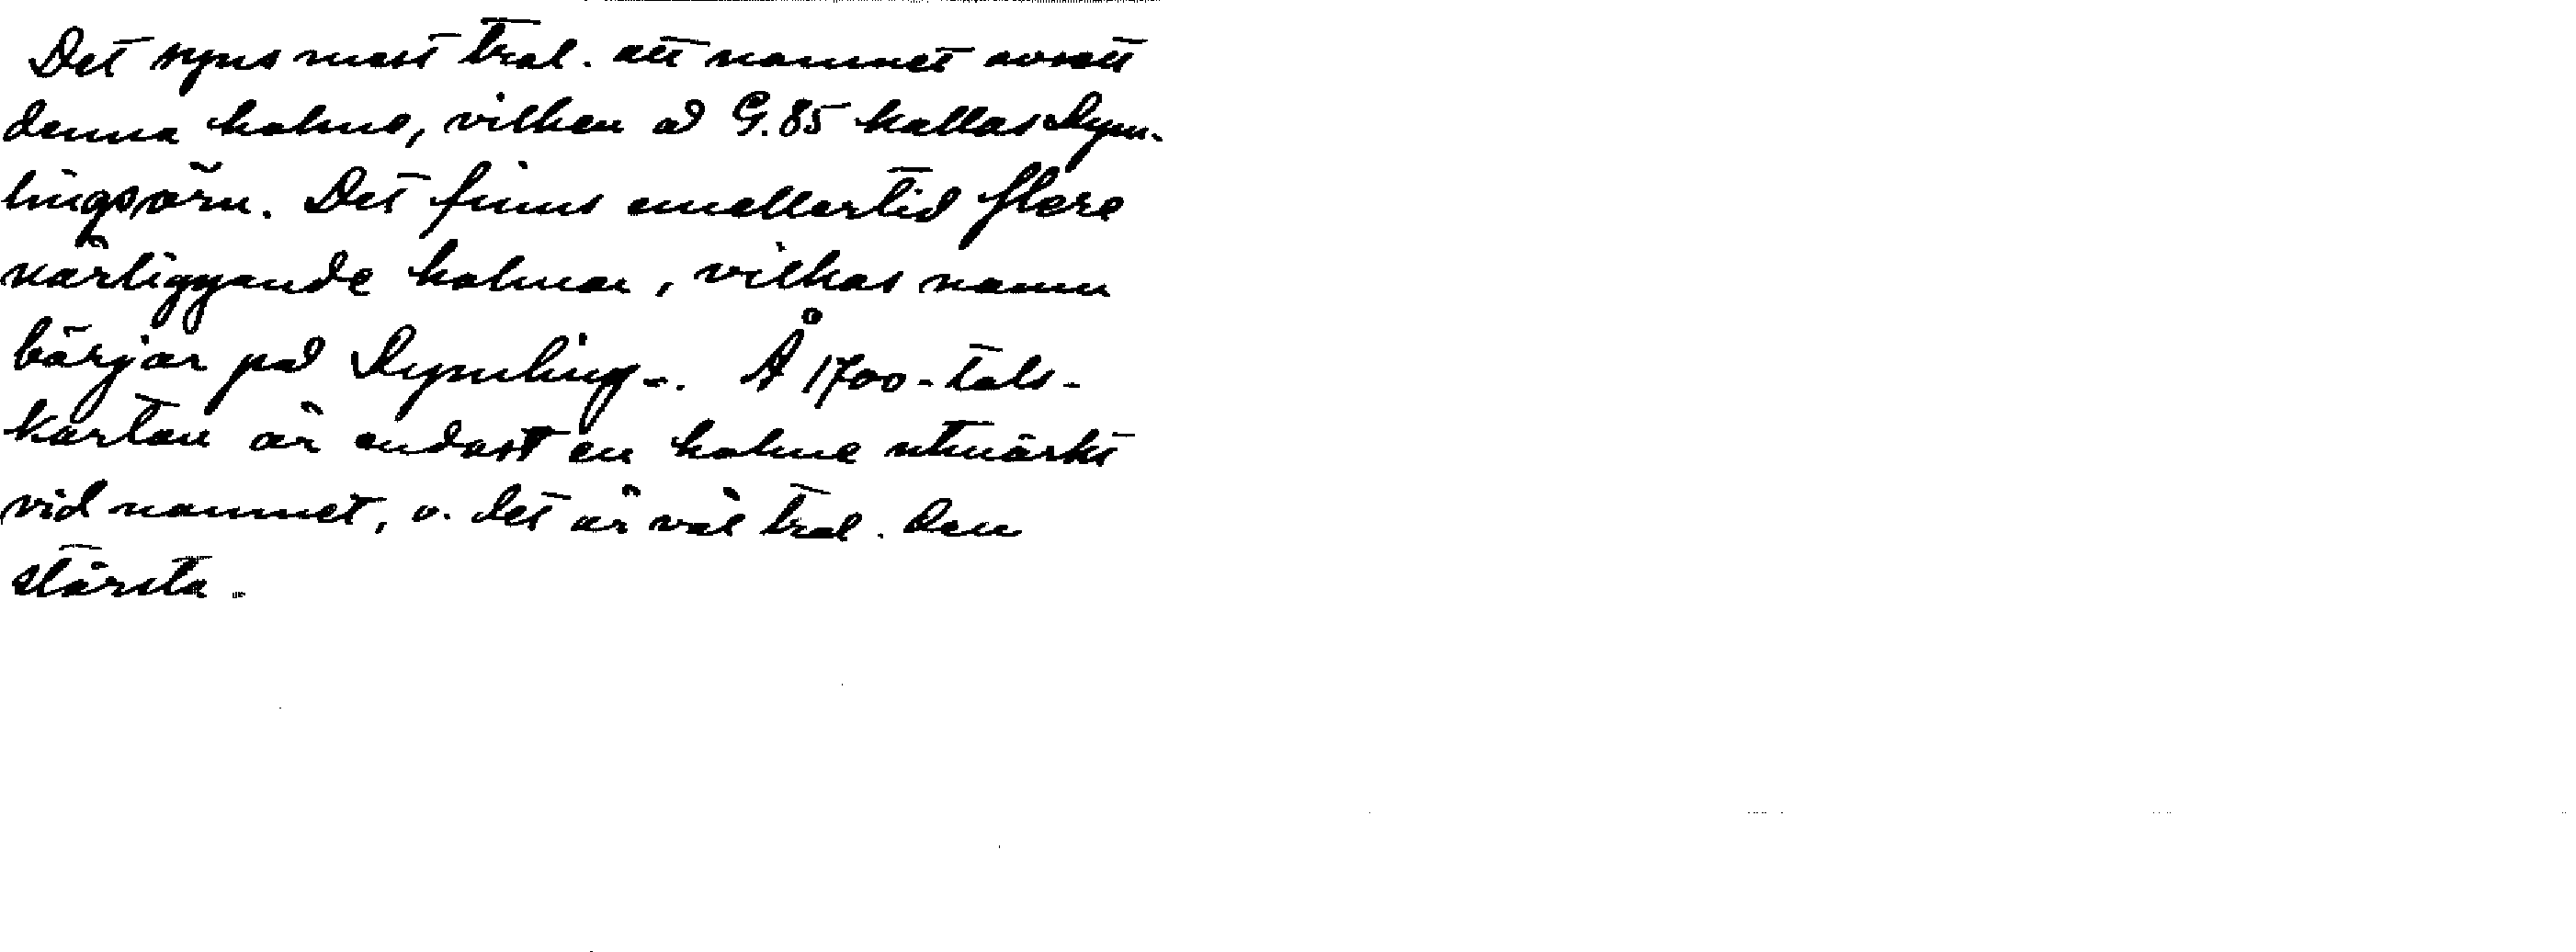 Det syns mest trol. att namnet avsett
denna holme, vilken å G. 85 kallas Rym-
lingsörn. Det finns emellertid flere
närliggande holmar, vilkas namn
börjar på Rymling-. Å 1700-tals-
kartan är endast en holme utmärkt
vid namnet, o. det är väl trol. den
största.